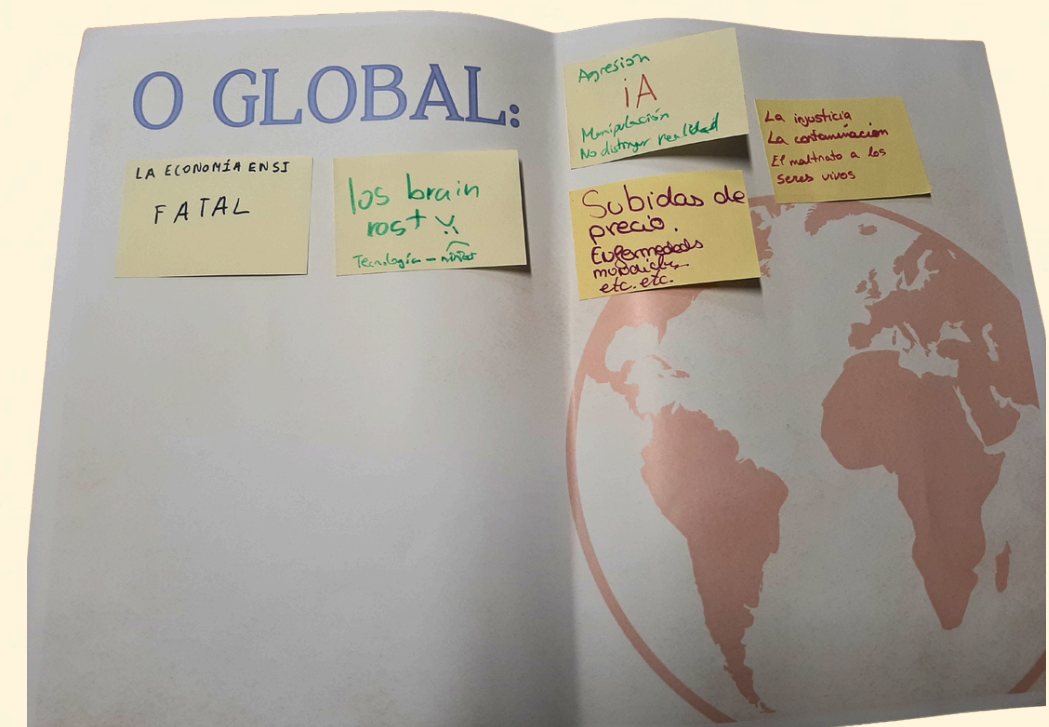 O GLOBAL:
LA ECONOMÍA EN SI
FATAL
los brain
rost
Tecnología - niños
Agresión
iA
Manipulación
No distinguir realidad
La injusticia
La contaminación
El maltrato a los
seres vivos
Subidas de
precio.
Enfermedades
mundiales
etc. etc.